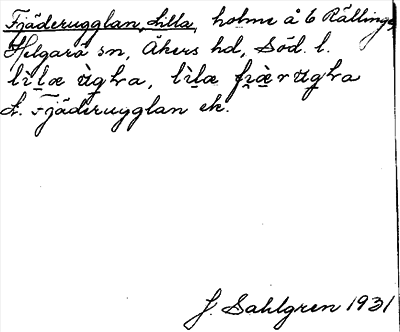 Fjäderugglan, Lilla, holme å 6 Rällinge,
Helgarö sn, Åkers hd, Söd. l.
lìl̯æ ùgl̯a, lìl̯æ fi̯æ̀rugl̯a
t. Fjäderugglan ek.
J. Sahlgren 1931